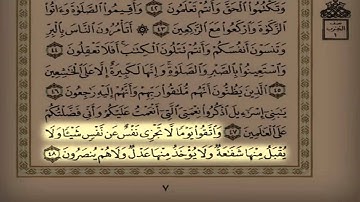 وَتَكْتُمُوا۟ ٱلْحَقَّ وَأَنتُمْ تَعْلَمُونَ ٤٢ وَأَقِيمُوا۟ ٱلصَّلَوٰةَ وَءَاتُوا۟
ٱلزَّكَوٰةَ وَٱرْكَعُوا۟ مَعَ ٱلرَّٰكِعِينَ ٤٣ أَتَأْمُرُونَ ٱلنَّاسَ بِٱلْبِرِّ
وَتَنسَوْنَ أَنفُسَكُمْ وَأَنتُمْ تَتْلُونَ ٱلْكِتَٰبَ أَفَلَا تَعْقِلُونَ ٤٤
وَٱسْتَعِينُوا۟ بِٱلصَّبْرِ وَٱلصَّلَوٰةِ وَإِنَّهَا لَكَبِيرَةٌ إِلَّا عَلَى ٱلْخَٰشِعِينَ
٤٥ ٱلَّذِينَ يَظُنُّونَ أَنَّهُم مُّلَٰقُوا۟ رَبِّهِمْ وَأَنَّهُمْ إِلَيْهِ رَٰجِعُونَ ٤٦
يَٰبَنِىٓ إِسْرَٰٓءِيلَ ٱذْكُرُوا۟ نِعْمَتِىَ ٱلَّتِىٓ أَنْعَمْتُ عَلَيْكُمْ وَأَنِّى فَضَّلْتُكُمْ
عَلَى ٱلْعَٰلَمِينَ ٤٧ وَٱتَّقُوا۟ يَوْمًا لَّا تَجْزِى نَفْسٌ عَن نَّفْسٍ شَيْـًٔا وَلَا
يُقْبَلُ مِنْهَا شَفَٰعَةٌ وَلَا يُؤْخَذُ مِنْهَا عَدْلٌ وَلَا هُمْ يُنصَرُونَ ٤٨
٧
الحزب
١